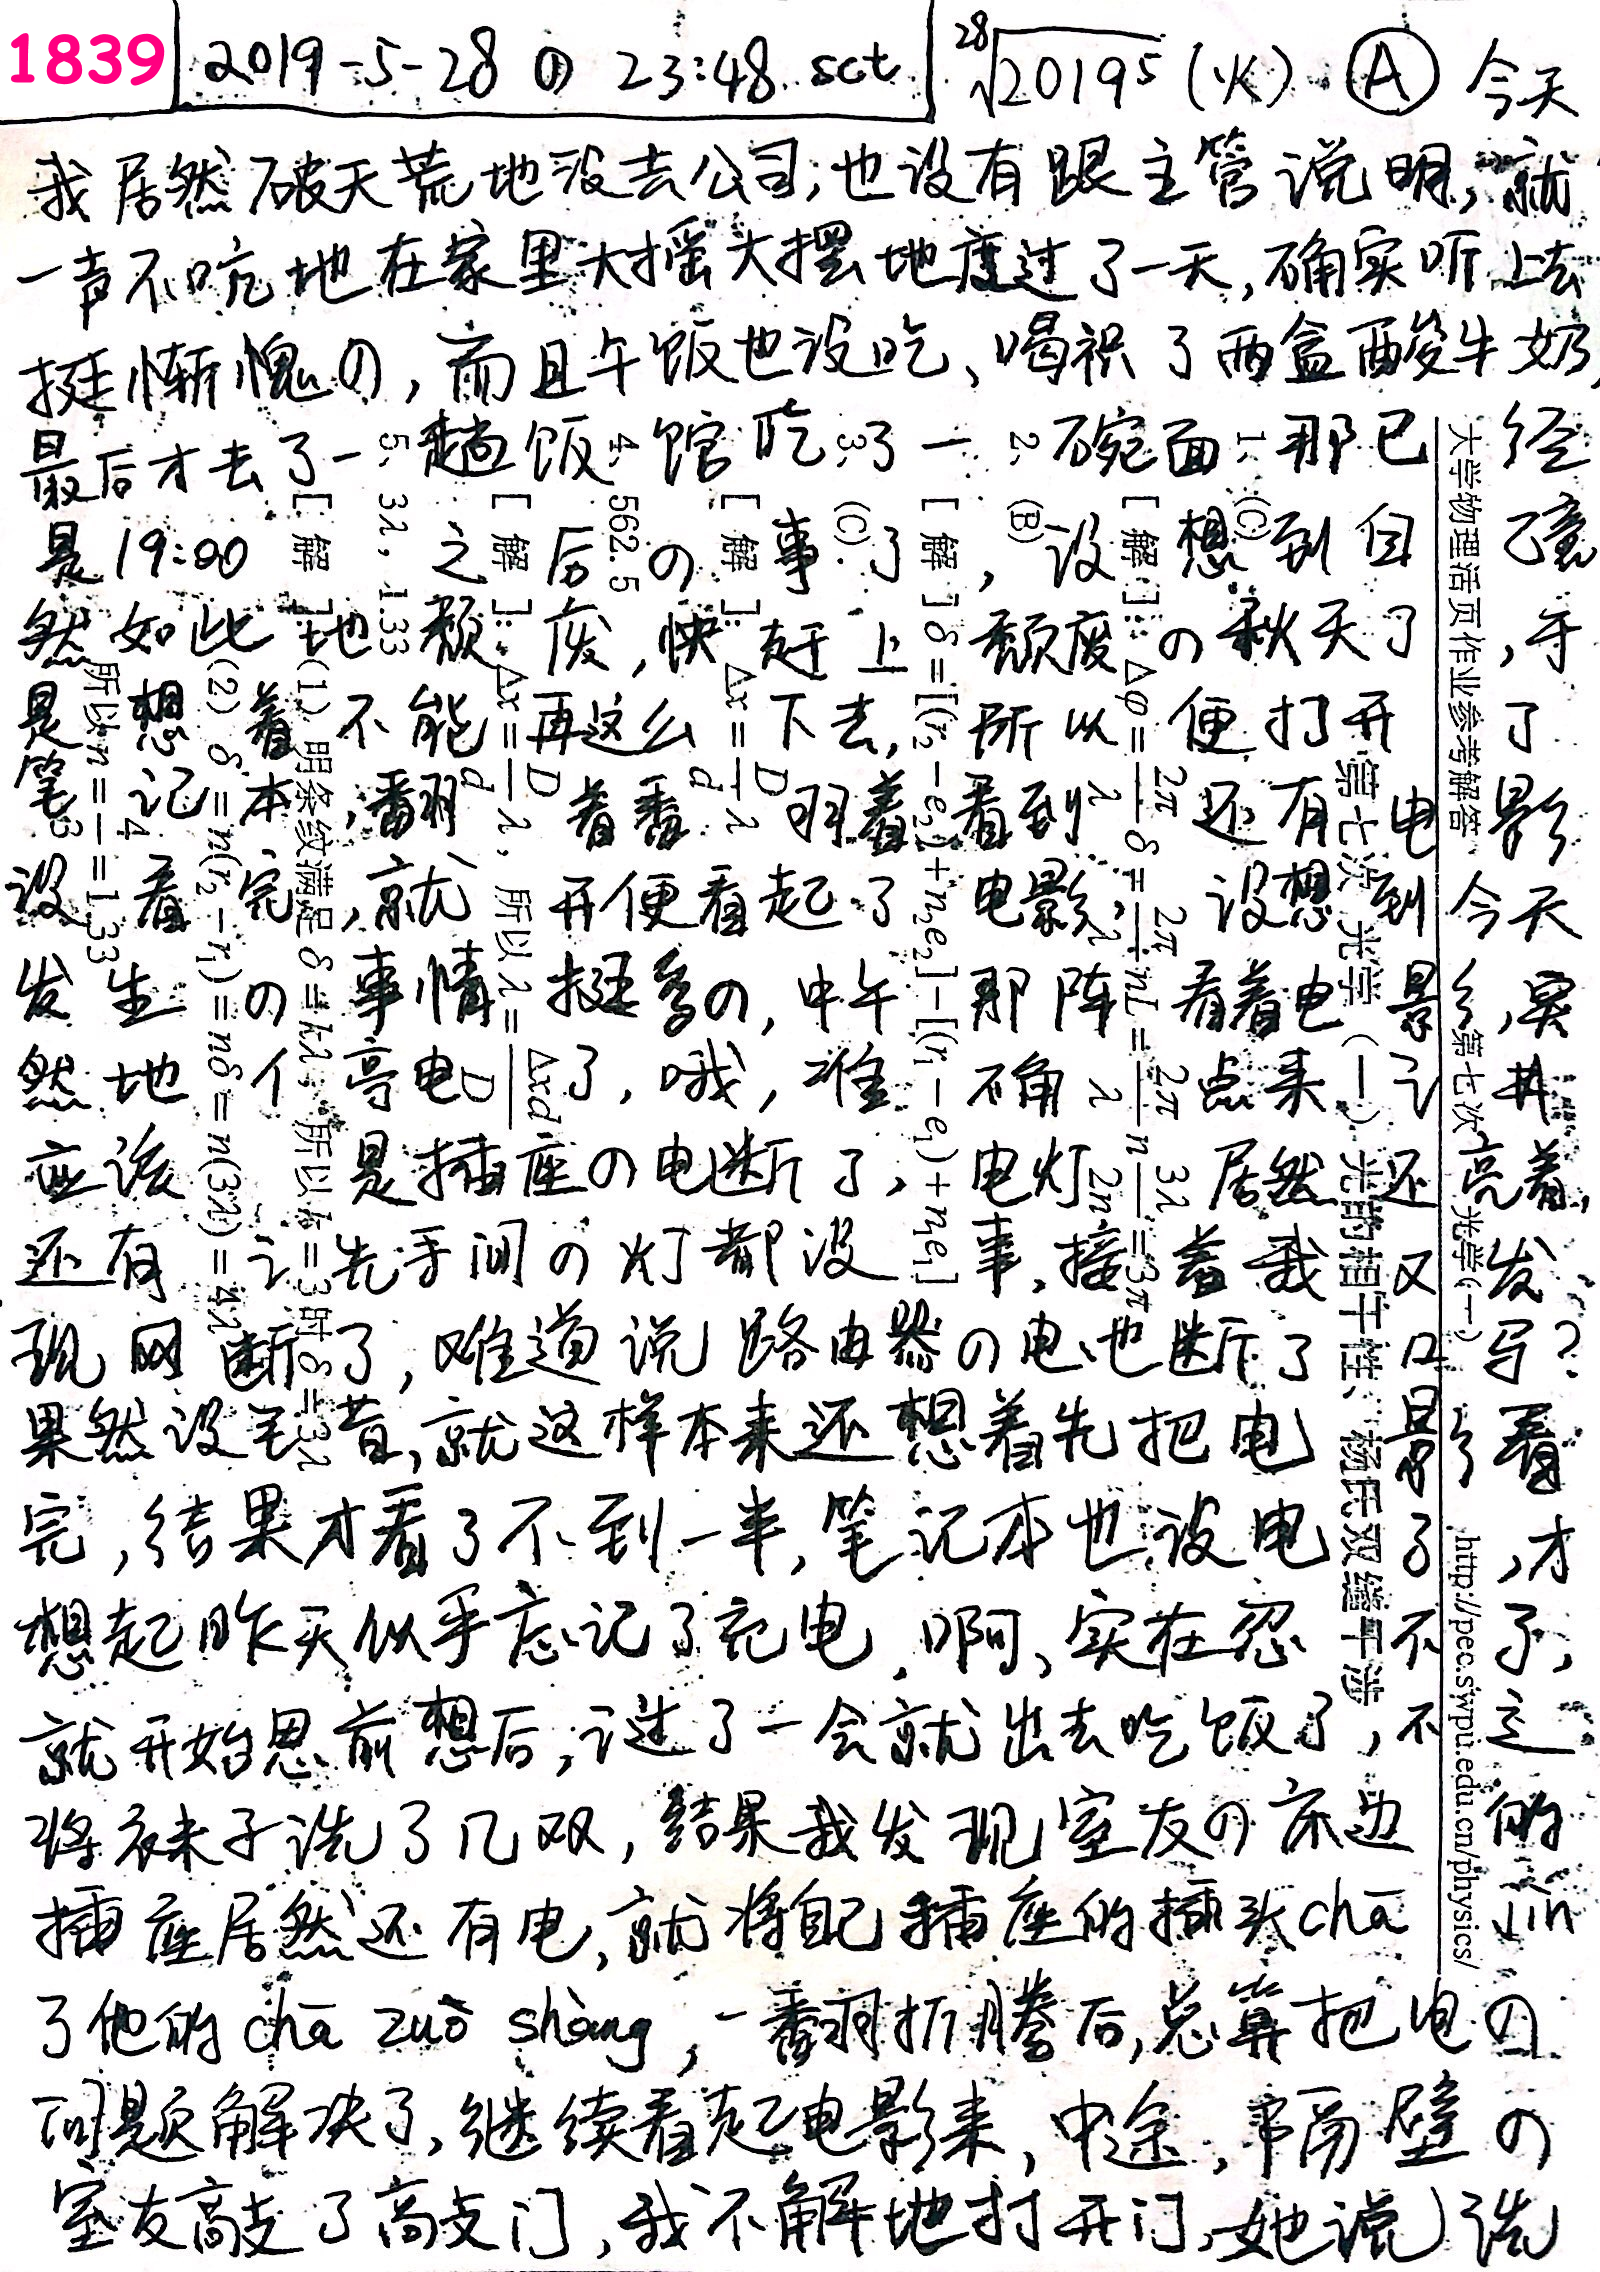 1839 2019-5-28の23:48 sct ²⁸√2019⁵ (火) Ⓐ 今天
我居然破天荒地没去公司,也没有跟主管说明,就
一声不吭地在家里大摇大摆地度过了一天,确实听上去
挺惭愧の,而且午饭也没吃、喝了两盒酸牛奶,
最后才去了一趟饭馆吃了一碗面,那已经
是19:00之后の事了,没想到自己竟
然如此地颓废,快赶上颓废の秋天了,于
是想着不能再这么下去,所以便打开了
笔记本,翻着翻着看到还有电影
没看完,就开便看起了电影,没想到今天
发生の事情挺多の,中午那阵看着电影,突
然地停电了,哦,准确点来讲
应该是插座の电断了,电灯居然还亮着,
还有洗手间の灯都没事,接着我又发
现网断了,难道说路由器の电也断了吗?
果然没毛昔,就这样本来还想着先把电影看
完,结果才看了不到一半,笔记本也没电了,才
想起昨天似乎忘记了充电,啊、实在忍不了,
就开始思前想后,过了一会就出去吃饭了,不过
将袜子洗了几双,结果我发现室友の床边的
插座居然还有电,就将自己插座的插头chā jìn
了他的chā zuò shàng,一番折腾后,总算把电の
问题解决了,继续看起电影来,中途,隔壁の
室友敲了敲门,我不解地打开门,她说洗
大学物理活页作业参考解答 第七次 光学(一) http://pec.swpu.edu.cn/physics/
第七次 光学(一) 光的相干性、杨氏双缝干涉
1、(C)
[解]: Δφ = 2π/λ δ = 2π/λ nL = 2π/λ n 3λ/2n = 3π
2、(B)
[解] δ = [(r₂ − e₂) + n₂e₂] − [(r₁ − e₁) + n₁e₁]
3、(C)
[解]: Δx = D/d λ
4、562.5
[解]: Δx = D/d λ, 所以λ = Δxd/D
5、3λ, 1.33
[解]: (1) 明条纹满足 δ = kλ, 所以k = 3时 δ = 3λ
(2) δ' = n(r₂ − r₁) = nδ = n(3λ) = 4λ
所以n = 4/3 = 1.33